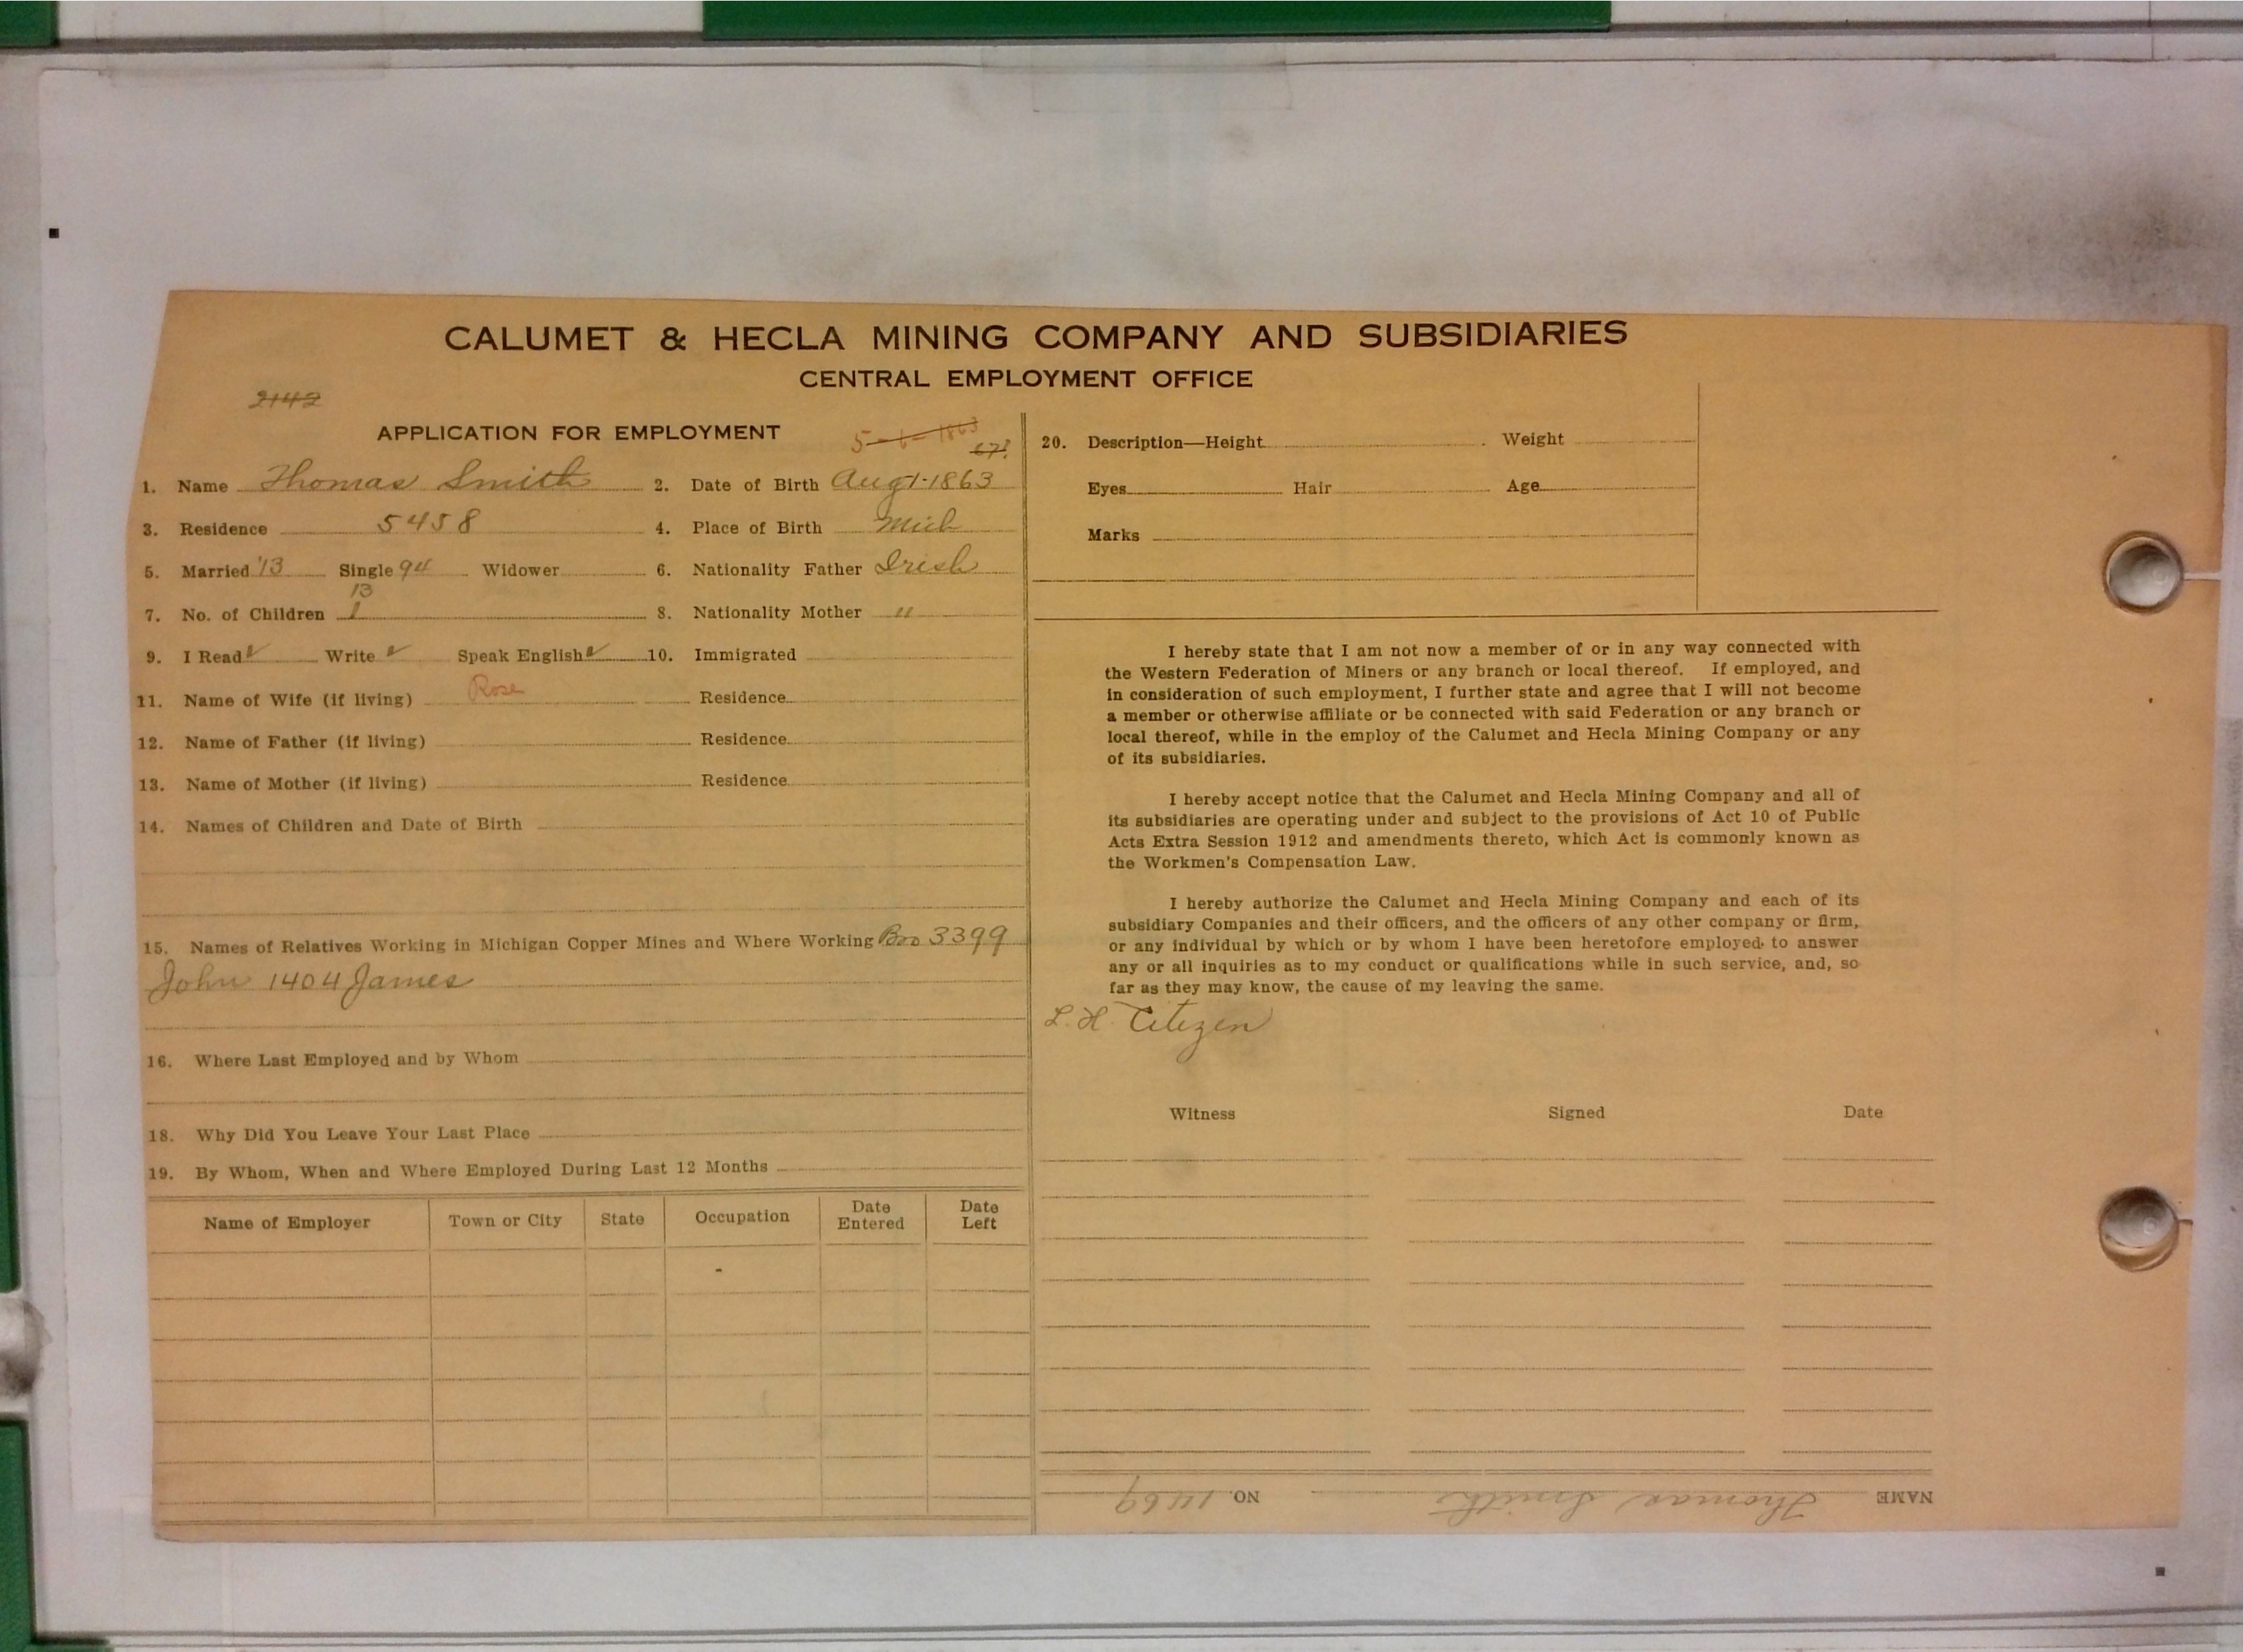 CALUMET & HECLA MINING COMPANY AND SUBSIDIARIES
CENTRAL EMPLOYMENT OFFICE
2142
APPLICATION FOR EMPLOYMENT
5-6-1863
67?
1. Name Thomas Smith 2. Date of Birth Aug 1-1863
3. Residence 5458 4. Place of Birth Mich
5. Married '13 Single 94 Widower 6. Nationality Father Irish
13
7. No. of Children 1 8. Nationality Mother "
9. I Read ✓ Write ✓ Speak English ✓ 10. Immigrated
11. Name of Wife (if living) Rose Residence
12. Name of Father (if living) Residence
13. Name of Mother (if living) Residence
14. Names of Children and Date of Birth
15. Names of Relatives Working in Michigan Copper Mines and Where Working Bro 3399
John 1404 James
16. Where Last Employed and by Whom
18. Why Did You Leave Your Last Place
19. By Whom, When and Where Employed During Last 12 Months
Name of Employer Town or City State Occupation Date Entered Date Left
20. Description—Height Weight
Eyes Hair Age
Marks
I hereby state that I am not now a member of or in any way connected with
the Western Federation of Miners or any branch or local thereof. If employed, and
in consideration of such employment, I further state and agree that I will not become
a member or otherwise affiliate or be connected with said Federation or any branch or
local thereof, while in the employ of the Calumet and Hecla Mining Company or any
of its subsidiaries.
I hereby accept notice that the Calumet and Hecla Mining Company and all of
its subsidiaries are operating under and subject to the provisions of Act 10 of Public
Acts Extra Session 1912 and amendments thereto, which Act is commonly known as
the Workmen's Compensation Law.
I hereby authorize the Calumet and Hecla Mining Company and each of its
subsidiary Companies and their officers, and the officers of any other company or firm,
or any individual by which or by whom I have been heretofore employed to answer
any or all inquiries as to my conduct or qualifications while in such service, and, so
far as they may know, the cause of my leaving the same.
L. H. Citizen
Witness Signed Date
NAME Thomas Smith NO. 1469